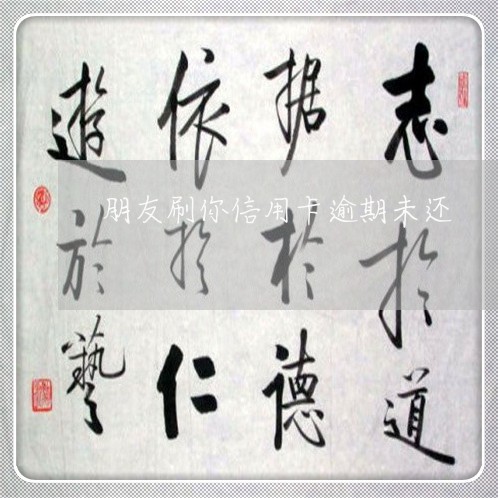 志於道
据於德
依於仁
遊於藝
朋友刷你信用卡逾期未还